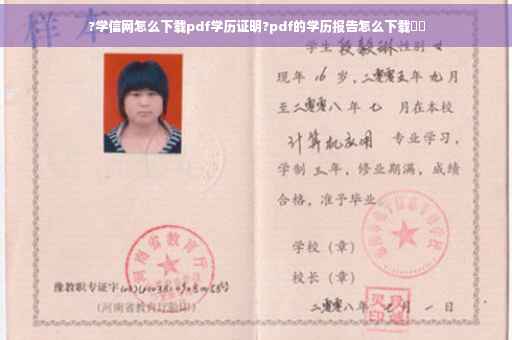 ?学信网怎么下载pdf学历证明?pdf的学历报告怎么下载
样本
学生段毅琳性别女
现年16岁，二零零五年九月
至二零零八年七月在本校
计算机应用 专业学习，
学制三年，修业期满，成绩
合格，准予毕业。
学校（章）
校长（章）
二零零八年七月一日
河南省教育厅
豫教职专证字
（河南省教育厅验印）